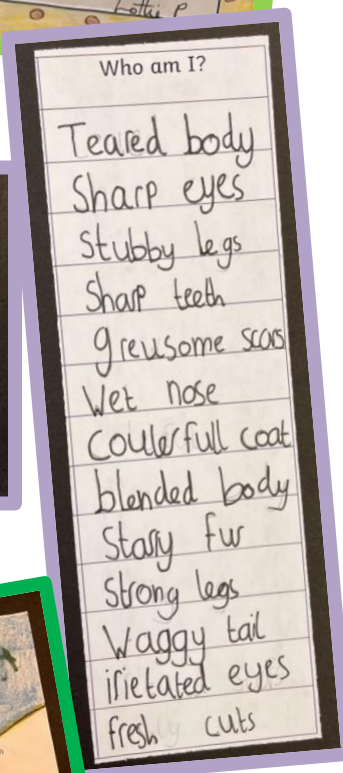 Lottie P
Who am I?
Teared body
Sharp eyes
Stubby legs
Sharp teeth
greusome scars
Wet nose
Coulerfull coat
blended body
Stary fur
Strong legs
Waggy tail
irietated eyes
fresh cuts